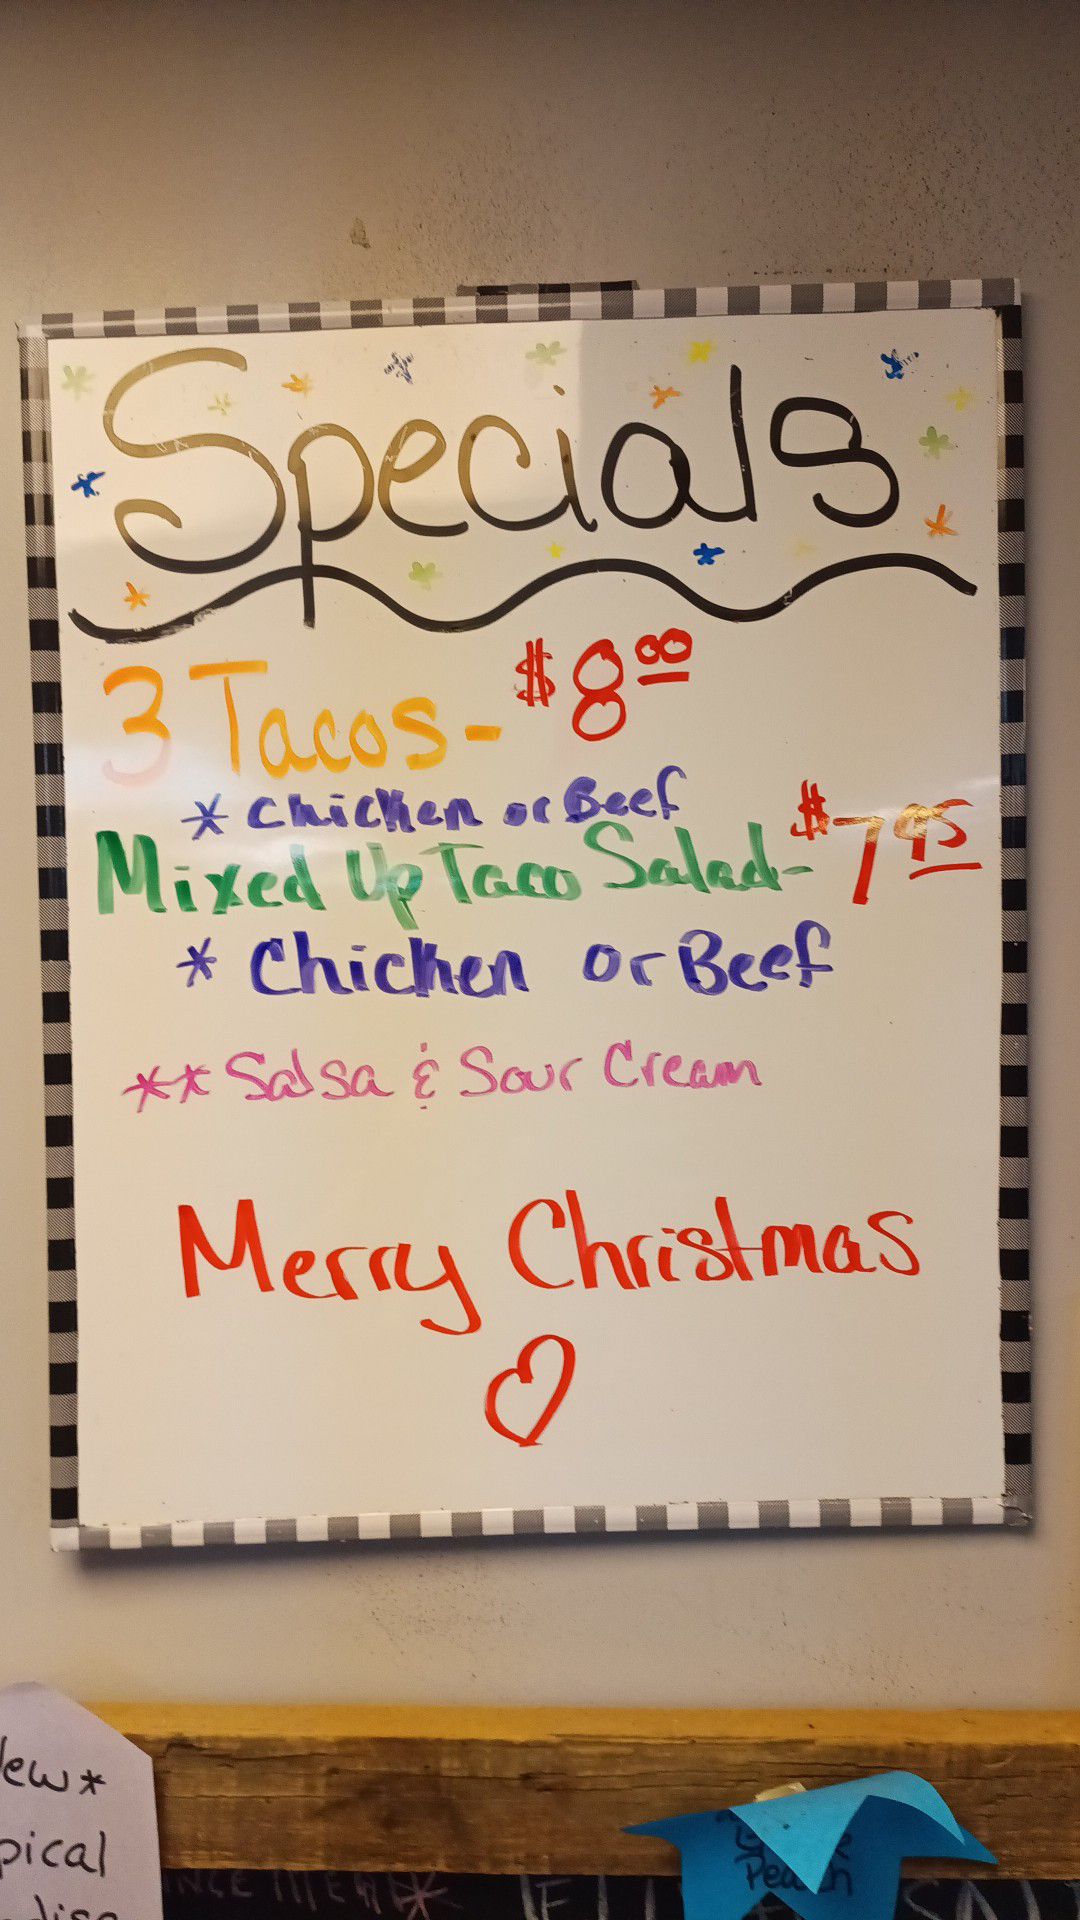 Specials
3 Tacos - $8.00
* Chicken or Beef
Mixed Up Taco Salad - $7.95
* Chicken or Beef
** Salsa & Sour Cream
Merry Christmas
ew*
pical
Peach